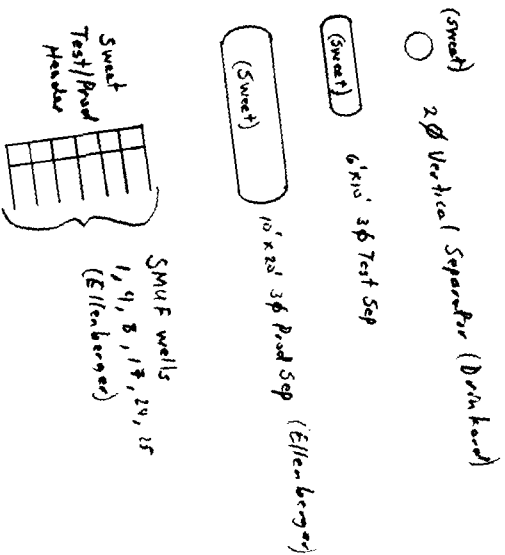 (sweet)
2Ø Vertical Separator (Drinkard)
(sweet)
6'x10' 3ø Test Sep
(Sweet)
10'x20' 3ø Prod Sep (Ellenberger)
Sweet
Test/Prod
Header
SMUF wells
1, 4, 8, 17, 24, 25
(Ellenberger)